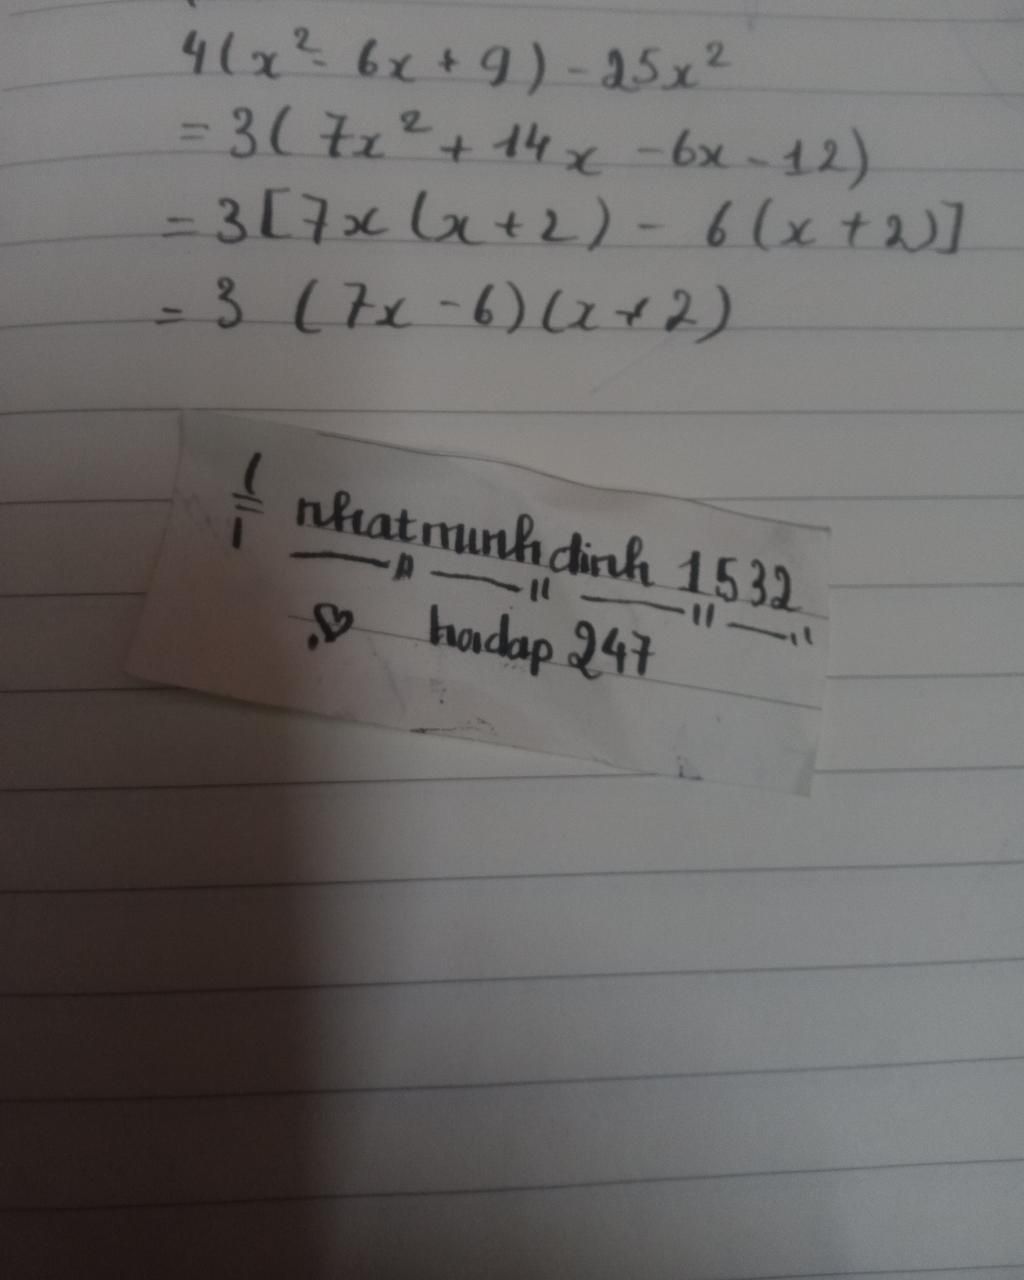 4(x² - 6x + 9) - 25x²
= 3(7x² + 14x - 6x - 12)
= 3[7x(x + 2) - 6(x + 2)]
= 3 (7x - 6)(x + 2)
nhatminhdinh 1532
hoidap 247